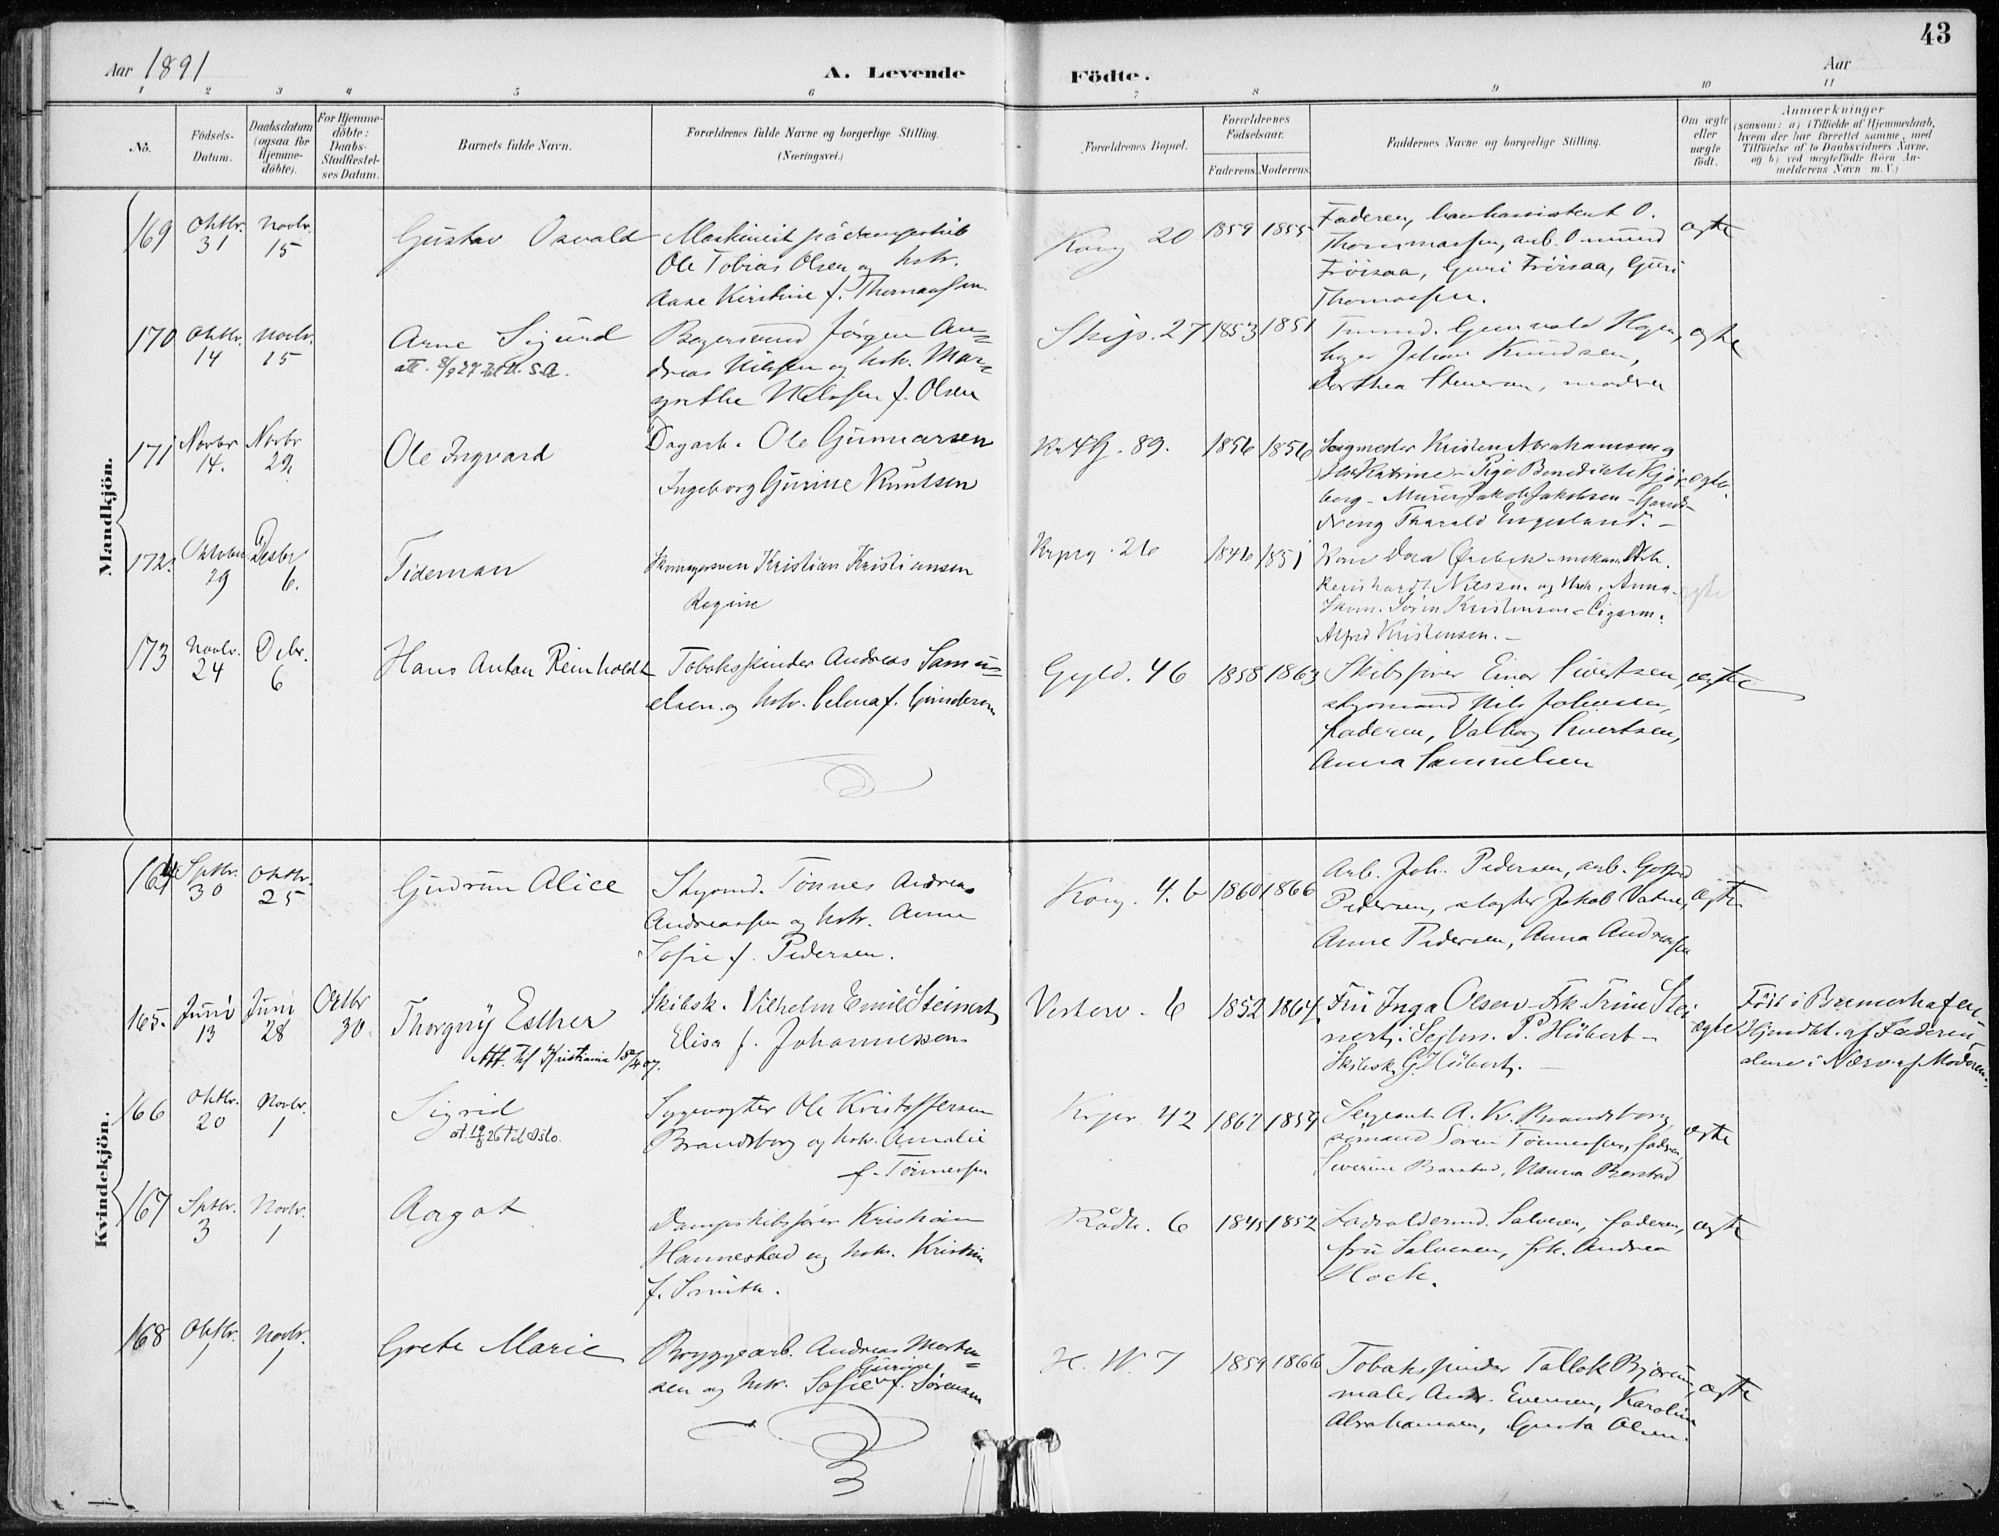 43
Aar 1891 A. Levende Födte. Aar
1 2 3 4 5 6 7 8 9 10 11
No.
Födsels-Datum.
Daabsdatum (ogsaa for Hjemmedöbte).
For Hjemmedöbte: Daabs-Stadfæstelses Datum.
Barnets fulde Navn.
Forældrenes fulde Navne og borgerlige Stilling. (Næringsvei.)
Forældrenes Bopæl.
Forældrenes Födselsaar.
Faderens. Moderens.
Faddernes Navne og borgerlige Stilling.
Om ægte eller uægte födt.
Anmærkninger
(saasom: a) i Tilfælde af Hjemmedaab,
hvem der har forrettet samme, med
Tilföielse af to Daabsvidners Navne,
og b) ved uægtefödte Börn Anmelderens Navn m.V.)
Mandkjön.
169 Oktbr. 31 Novbr. 15 Gustav Osvald
Maskinist på dampskib
Ole Tobias Olsen og hstr.
Aase Kirstine f. Thomassen
Kong. 20 1859 1855
Faderen, bankassistent O.
Thommassen, arb. Omund
Fröisaa, Guri Fröisaa, Guri
Thomassen.
ægte
170 Oktbr. 14 Novbr. 15 Arne Sigurd
Jörgen An-
dreas Nilsen og hstr. Mar-
grethe Nilssen f. Olsen
Skip. 27 1853 1851
Gunvald Hagen,
Johan Knudsen,
Dorthea, modren
ægte
171 Novbr 14. Novbr 29 Ole Ingvard
Dagarb. Ole Gunnarsen
Ingeborg Gurine Knutsen
89. 1856 1856
Kristen Abrahamsen og
Katrine - Pige Benedikte Kjør-
berg - Murer Jakob Jakobsen - Gaards-
dreng Tharald Engesland. -
ægte
172. Oktober 29 Desbr 6. Tideman
Kristian Kristiansen
Regine
26 1846 1851
Reinhardt Nilssen og Anna -
Skom. Sørin Kristensen - Cigarm.
Alfred Kristensen. -
ægte
173 Novbr. 24 Debr. 6 Hans Anton Reinholdt
Tobakspinder Andreas Samu-
elsen og hstr. Selma f. Gundersen
Gyld. 46 1858 1863
Skibsfører Einar Sivertsen,
styrmand Nils Johnsen,
faderen, Valborg Sivertsen,
Anna Samuelsen
ægte
Kvindekjön.
164 Sptbr. 30 Oktbr. 25 Gudrun Alice
Styrmd. Tönnes Andreas
Andreassen og hstr. Anne
Sofie f. Pedersen.
Kong. 4.b 1860 1866
Arb. Joh. Pedersen, arb.
Pedersen, slagter Jakob Vatne,
Anne Pedersen, Anna Andreassen
ægte
165. Juni 13 Juni 28 Octbr 30. Thorgny Esther
Att. til Kristiania
Skibsk. Vilhelm Emil Steinert
Elisa f. Johannessen
Vesterv. 6 1852 1864
Fru Inga Olsen - Frk. Trine Stei-
nert, Sejlm. P. Hübert -
Skibsk. G. Hübert. -
ægte
Født i Bremerhafen,
Hjmdbt. af Faderen
alene i Nærv. af Moderen.
166 Oktbr. 20 Novbr. 1 Sigrid
til Oslo.
Sygevogter Ole Kristoffersen
Brandsborg og hstr. Amalie
f. Tønnessen
42 1867 1859
Sergeant A. Kr. Brandsborg,
sömand Sören Tönnessen, fadren,
Severine, Hanna Berstad
ægte
167 Sptbr. 3 Novbr. 1 Aagot
Dampskibsfører Kristian
Hannestad og hstr. Kristine
f. Smith.
Rådh. 6 1845 1852
Salvesen, faderen,
fru Salvesen, frk. Andrea
Hoch.
ægte
168 Oktbr. 1 Novbr. 1 Grete Marie
Bryggearb. Andreas Morten-
sen og hstr. Sofie Gurine f. Sörensen
H. W. 7 1859 1866
Tobakspinder Tallak Bjorum,
maler Andr. Evensen, Karoline
Abrahamsen, Gusta Olsen.
ægte